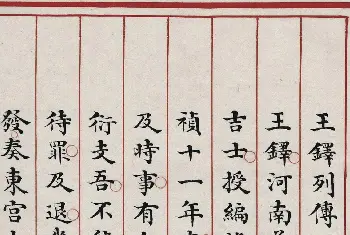 王鐸列傳
王鐸河南
吉士授編
禎十一年
及時事有
衍支吾不
待罪及退
發奏東宫